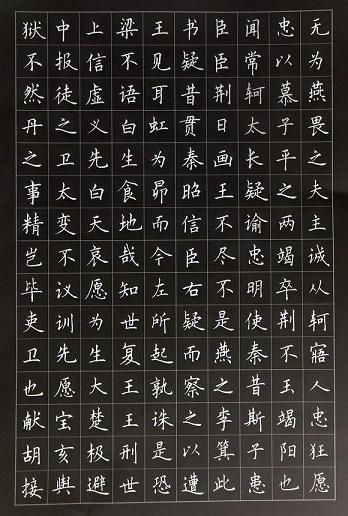 狱中上梁王书臣闻忠无
不报信不见疑臣常以为
然徒虚语耳昔荆轲慕燕
丹之义白虹贯日太子畏
之卫先生为秦画长平之
事太白食昴昭王疑之夫
精变天地而信不谕两主
岂不哀哉今臣尽忠竭诚
毕议愿知左右不明卒从
吏训为世所疑是使荆轲
卫先生复起而燕秦不寤
也愿大王孰察之昔玉人
献宝楚王诛之李斯竭忠
胡亥极刑是以箕子阳狂
接舆避世恐遭此患也愿